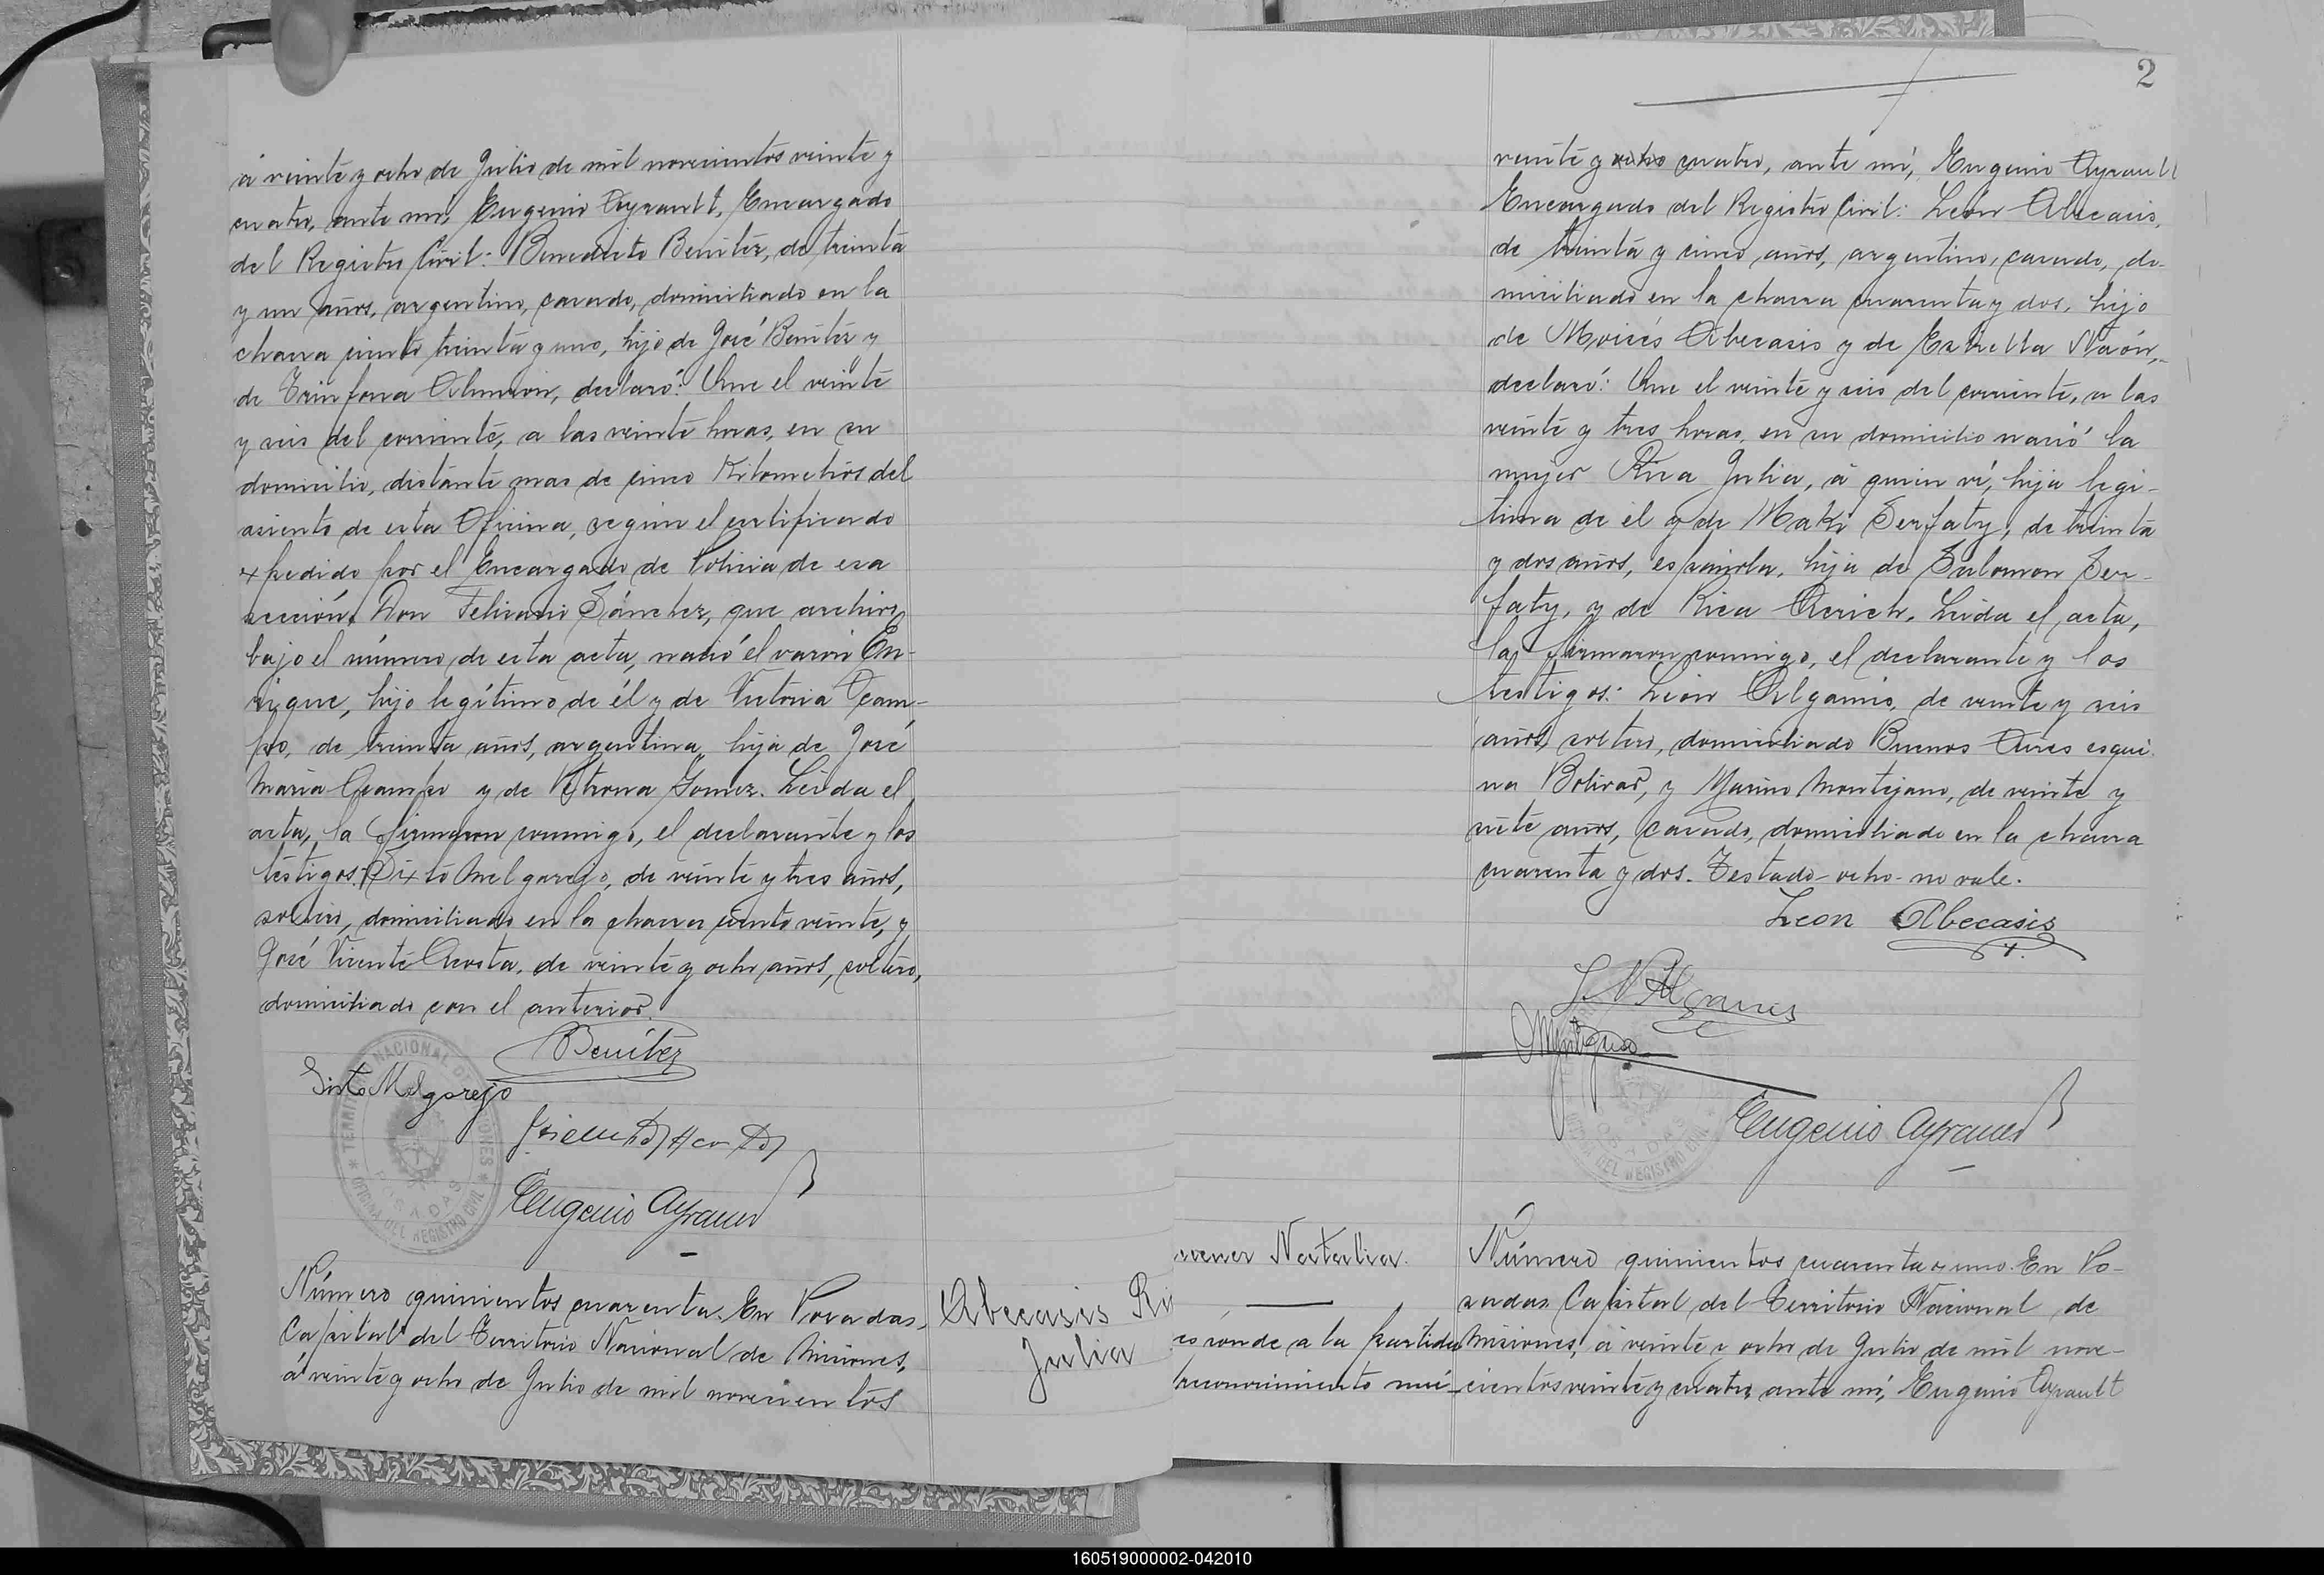 á veinte y ocho de Julio de mil novecientos veinte y
cuatro, ante mi, Eugenio Ayrault, Encargado
del Registro Civil: Benedicto Benitez, de treinta
y un años, argentino, casado, domiciliado en la
chacra ciento treinta y uno, hijo de José Benitez y
de Trinfona Alarcon, declaró: Que el veinte
y seis del corriente, a las veinte horas, en su
domicilio, distante mas de cinco Kilometros del
asiento de esta Oficina, según el certificado
expedido por el Encargado de Policia de esa
sección, Don Feliciano Sánchez, que archivo
bajo el número de esta acta, nació el varón En-
rique, hijo legítimo de él y de Victoria Ocam-
po, de treinta años, argentina, hija de José
Maria Ocampo y de Petrona Gomez. Leida el
acta, la firmaron conmigo, el declarante y los
testigos: Sixto Melgarejo, de veinte y tres años,
soltero, domiciliado en la chacra ciento veinte, y
José Vicente Acosta, de veinte y ocho años, soltero,
domiciliado con el anterior.
Benítez
Sixto Melgarejo
Eugenio Ayrault
TERRITORIO NACIONAL DE MISIONES
POSADAS
OFICINA DEL REGISTRO CIVIL
Número quinientos cuarenta. En Posadas,
Capital del Territorio Nacional de Misiones,
á veinte y ocho de Julio de mil novecientos
Abecasis Ri
Julia
2
veinte y ocho cuatro, ante mi, Eugenio Ayrault
Encargado del Registro Civil: León Abecasis,
de treinta y cinco años, argentino, casado, do-
miciliado en la chacra cuarenta y dos, hijo
de Moisés Abecasis y de Estrella Naón,
declaró: Que el veinte y seis del corriente, a las
veinte y tres horas, en su domicilio nació la
mujer Rica Julia, á quien ví, hija legi-
tima de él y de Maki Serfaty, de treinta
y dos años, española, hija de Salomon Ser-
faty, y de Rica Acrich. Leida el acta,
la firmaron conmigo, el declarante y los
testigos: León Algamis, de veinte y seis
años, soltero, domiciliado Buenos Aires esqui-
na Bolivar, y Marino Montejano, de veinte y
siete años, casado, domiciliado en la chacra
cuarenta y dos. Testado - ocho - no vale.
Leon Abecasis
Eugenio Ayrault
OFICINA DEL REGISTRO CIVIL
Natalia.
Número quinientos cuarenta y uno. En Po-
sadas, Capital del Territorio Nacional de
es ponde a la partida
Misiones, á veinte y ocho de Julio de mil nove-
reconocimiento nú-
cientos veinte y cuatro, ante mi, Eugenio Ayrault
160519000002-042010